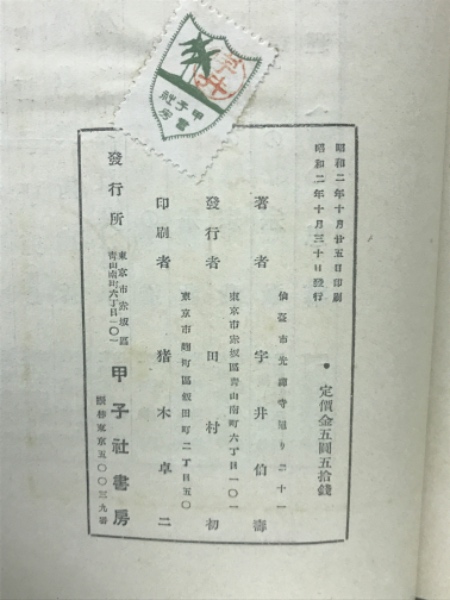 昭和二年十月廿五日印刷
昭和二年十月三十日發行
定價金五圓五拾錢
仙臺市光禪寺通り二十一
著者 宇井伯壽
東京市赤坂區青山南町六丁目一〇一
發行者 田村初
東京市麹町區飯田町二丁目五〇
印刷者 猪木卓二
發行所 東京市赤坂區青山南町六丁目一〇一 甲子社書房
振替東京五〇〇三九番
甲子社書房